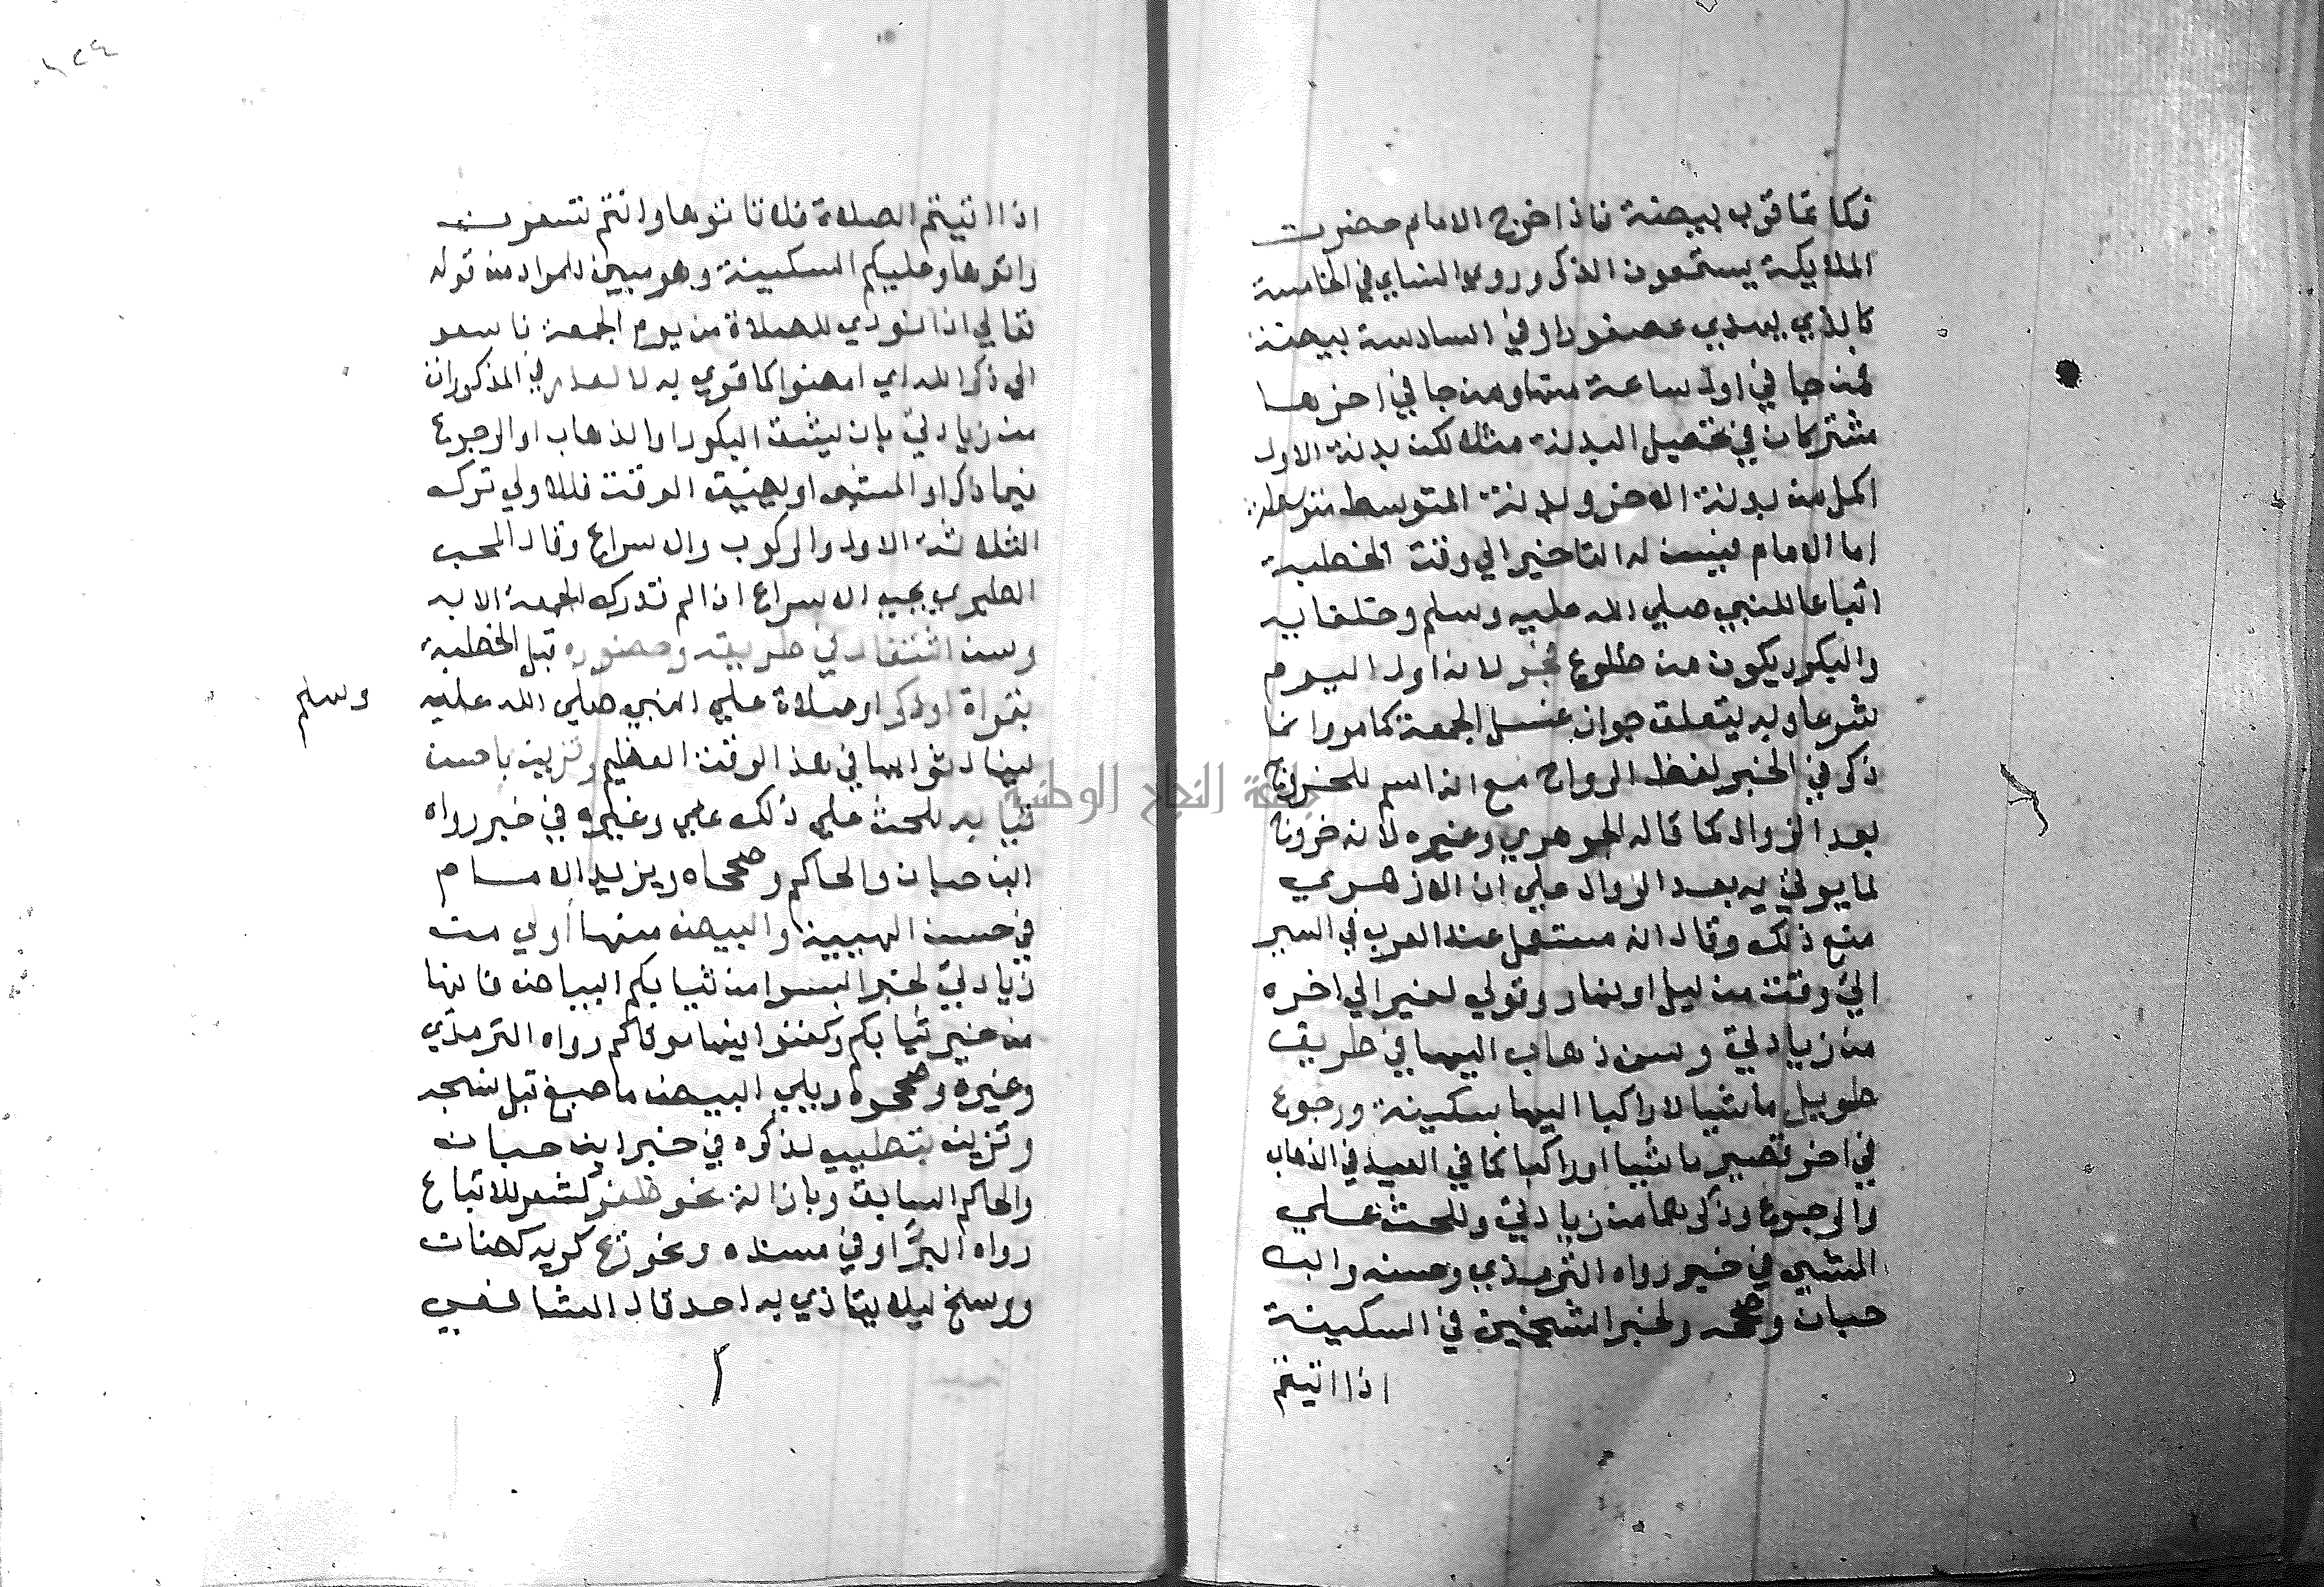 فكانما قرب بيضة فاذا خرج الامام حضرت
الملايكة يستمعون الذكر وروي النساي في الخامسة
كالذي يهدي عصفورا وفي السادسة بيضة
فمن جا في اول ساعة منها ومن جا في اخرها
مشتركان في تحصيل البدنة مثلا لكن بدنة الاول
اكمل من بدنة الاخر وبدنة المتوسط متوسطة
اما الامام فيسن له التاخير الي وقت الخطبة
اتباعا للنبي صلي الله عليه وسلم وخلفايه
والبكور يكون من طلوع فجر لانه اول اليوم
شرعا وبه يتعلق جواز غسل الجمعة كما مر وانما
ذكر في الخبر لفظ الرواح مع انه اسم للخروج
بعد الزوال كما قاله الجوهري وغيره لانه خروج
لما يوتي به بعد الزوال علي ان الازهري
منع ذلك وقال انه مستعمل عند العرب في السير
اي وقت من ليل او نهار وقولي لغير الي اخره
من زيادتي وسن ذهاب اليها في طريق
طويل ماشيا لا راكبا اليها بسكينة ورجوع
في اخر قصير ماشيا او راكبا كما في العيد في الذهاب
والرجوع وذكرهما من زيادتي وللحث علي
المشي في خبر رواه الترمذي وحسنه وابن
حبان وصححه ولخبر الشيخين في السكينة
اذا اتيتم
١٢٤
اذا اتيتم الصلاة فلا تاتوها وانتم تسعون
واتوها وعليكم السكينة وهو مبين للمراد من قوله
تعالي اذا نودي للصلاة من يوم الجمعة فاسعو
الي ذكر الله اي امضوا كما قري به لا لعذر في المذكوران
من زيادتي بان يشق البكور او الذهاب او الرجوع
فيما ذكر او المشي او يضيق الوقت فالاولي ترك
الثلاثة الاول والركوب والاسراع وقال المحب
الطبري يجب الاسراع اذا لم تدرك الجمعة الا به
وسن اشتغال في طريقه وحضوره قبل الخطبة
بقراة او ذكر او صلاة علي النبي صلي الله عليه
وسلم
لينال ثوابها في هذا الوقت العظيم وتزين باحسن
ثيابه للحث علي ذلك علي وغيره في خبر رواه
ابن حبان والحاكم وصححاه ويزيد الامام
في حسن الهيية والبيض منها اولي من
زيادتي لخبر البسوا من ثيابكم البياض فانها
من خير ثيابكم وكفنوا فيها موتاكم رواه الترمذي
وغيره وصححوه ويلي البيض ما صبغ قبل نسجه
وتزين بتطييب لذكره في خبر ابن حبان
والحاكم السابق وبازالة نحو ظفر كشعر للاتباع
رواه البزار في مسنده ونحو ريح كريه كصنان
ووسخ ليلا يتاذي به احد قال الشافعي